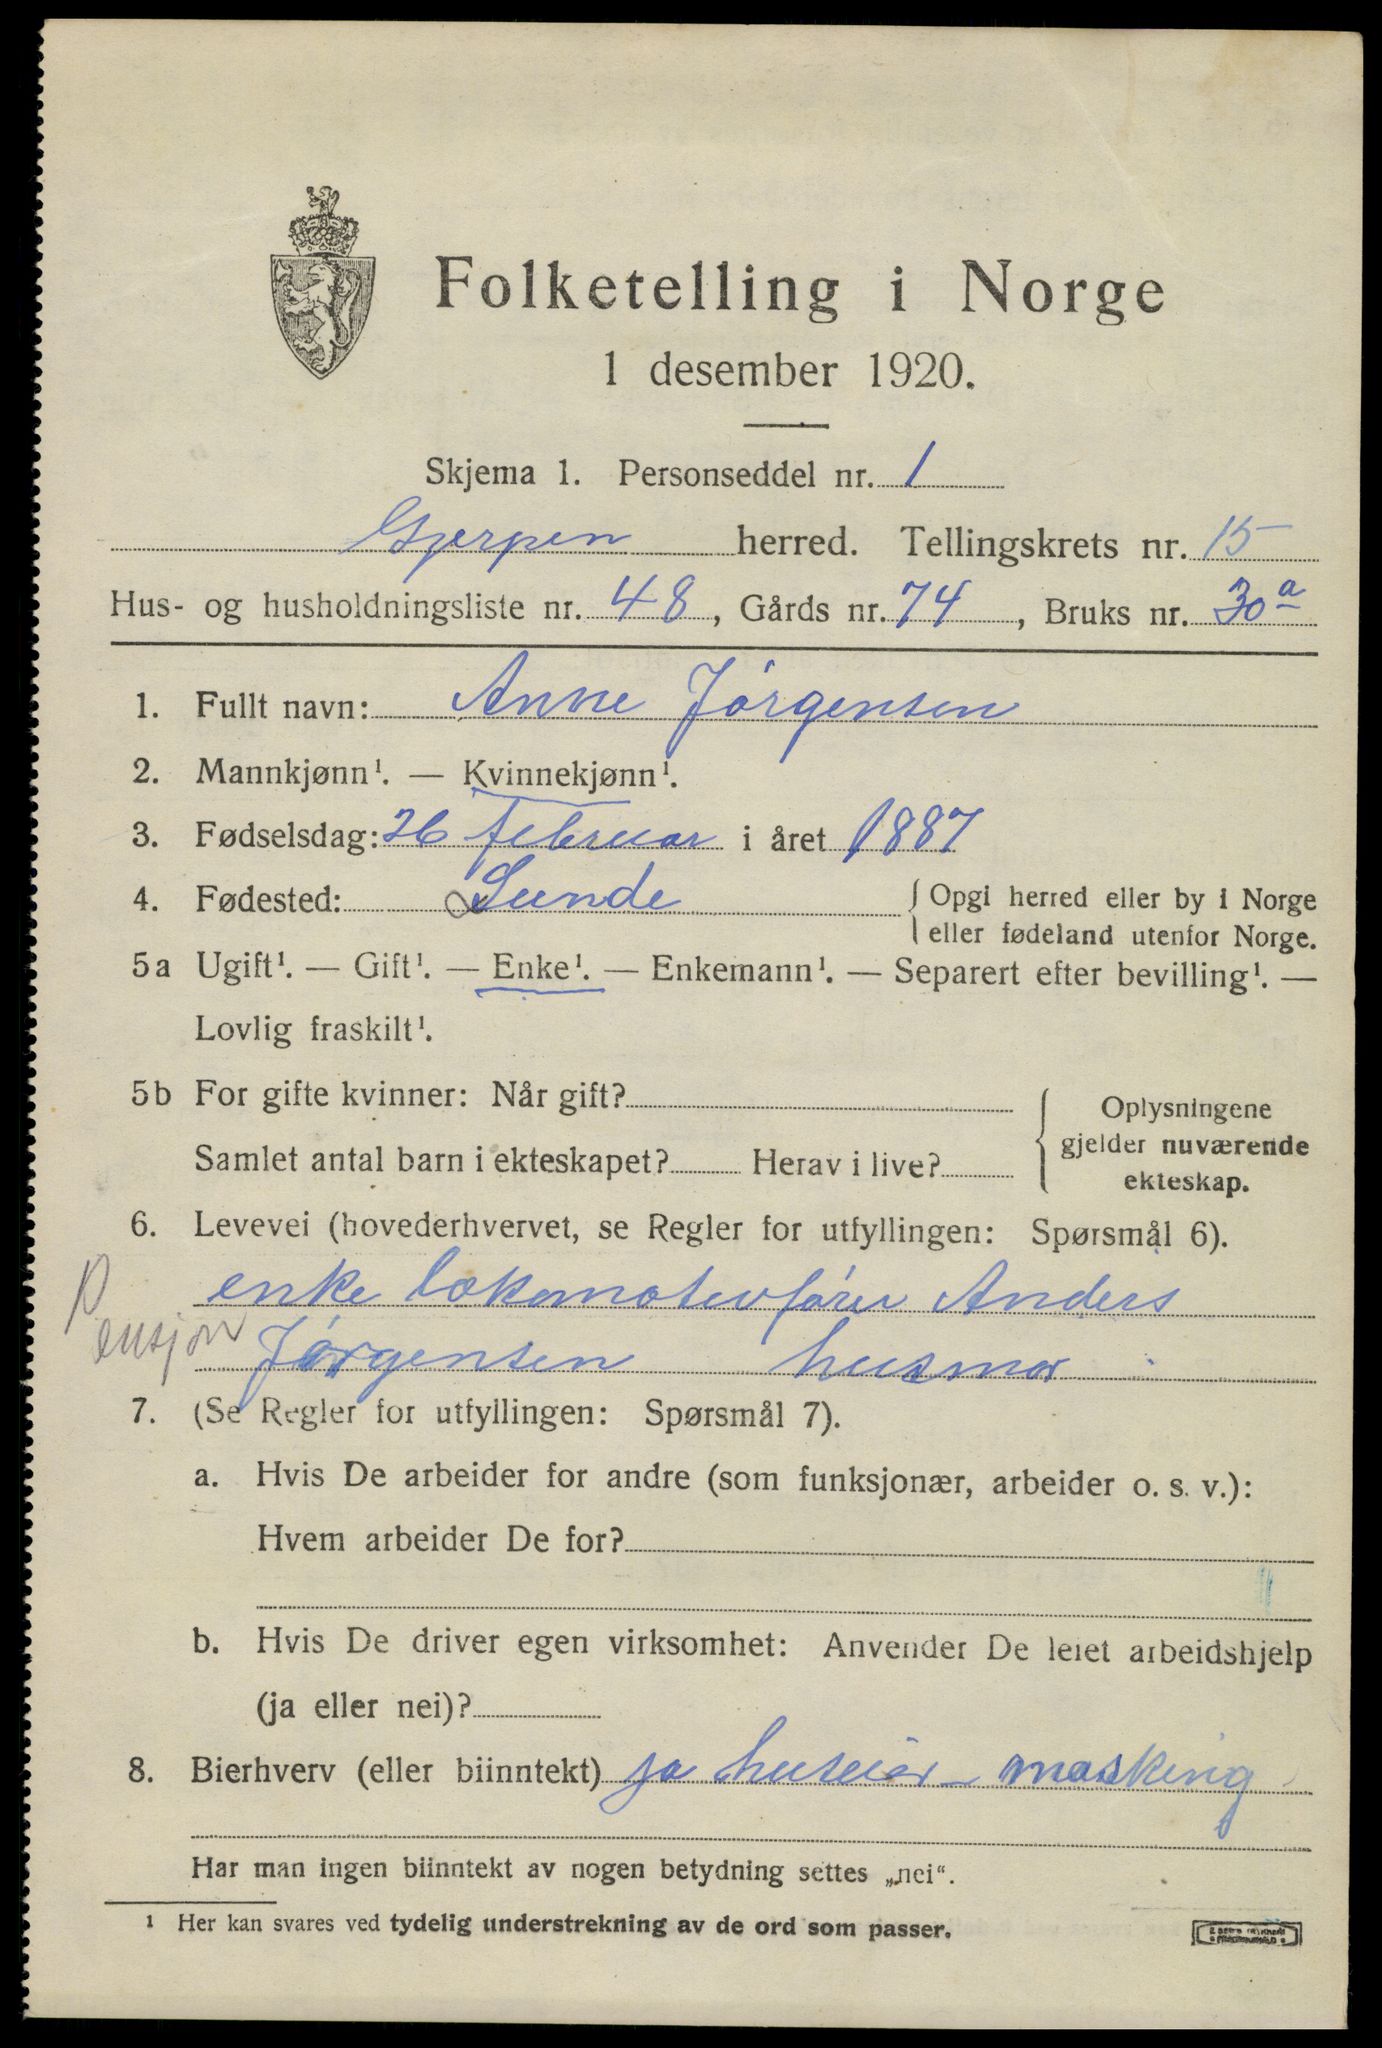 Folketelling i Norge
1 desember 1920.
Skjema 1. Personseddel nr. 1
Gjerpen herred. Tellingskrets nr. 15
Hus- og husholdningsliste nr. 48, Gårds nr. 74, Bruks nr. 30a
1. Fullt navn: Anne Jörgensen
2. Mannkjønn¹. — Kvinnekjønn¹.
3. Fødselsdag: 26 februar i året 1887
4. Fødested: Lunde { Opgi herred eller by i Norge
eller fødeland utenfor Norge.
5a Ugift¹. — Gift¹. — Enke¹. — Enkemann¹. — Separert efter bevilling¹. —
Lovlig fraskilt¹.
5b For gifte kvinner: Når gift?
Samlet antal barn i ekteskapet? Herav i live?
{ Oplysningene
gjelder nuværende
ekteskap.
6. Levevei (hovederhvervet, se Regler for utfyllingen: Spørsmål 6).
Pensjon
enke lokomotivfører Anders
Jörgensen husmor
7. (Se Regler for utfyllingen: Spørsmål 7).
a. Hvis De arbeider for andre (som funksjonær, arbeider o. s. v.):
Hvem arbeider De for?
b. Hvis De driver egen virksomhet: Anvender De leiet arbeidshjelp
(ja eller nei)?
8. Bierhverv (eller biinntekt) ja huseier -
Har man ingen biinntekt av nogen betydning settes „nei“.
¹ Her kan svares ved tydelig understrekning av de ord som passer.